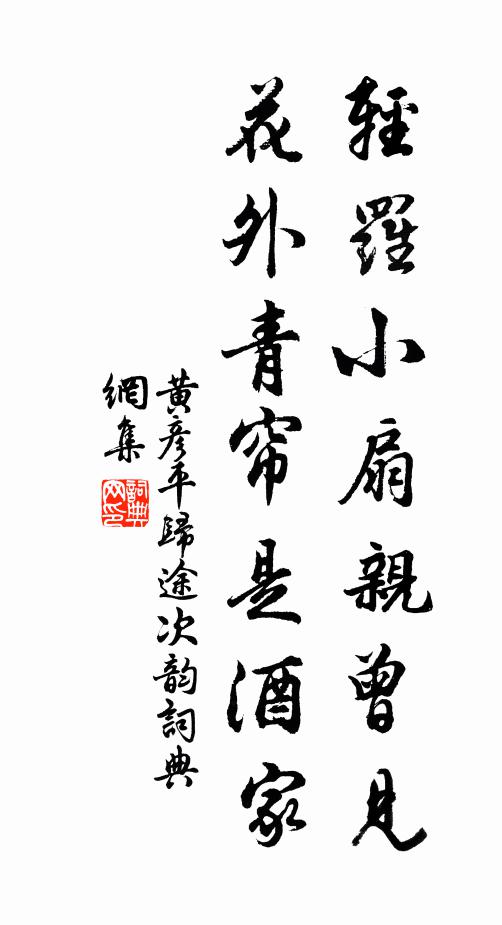 輕羅小扇親曾見
花外青帘是酒家
黃彥平歸途次韵詞典
網集
詞典
网印